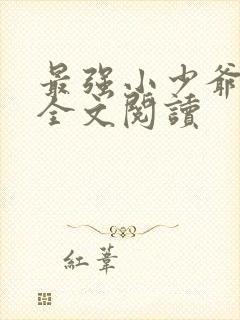 最强小少爷
全文阅讀
红葦